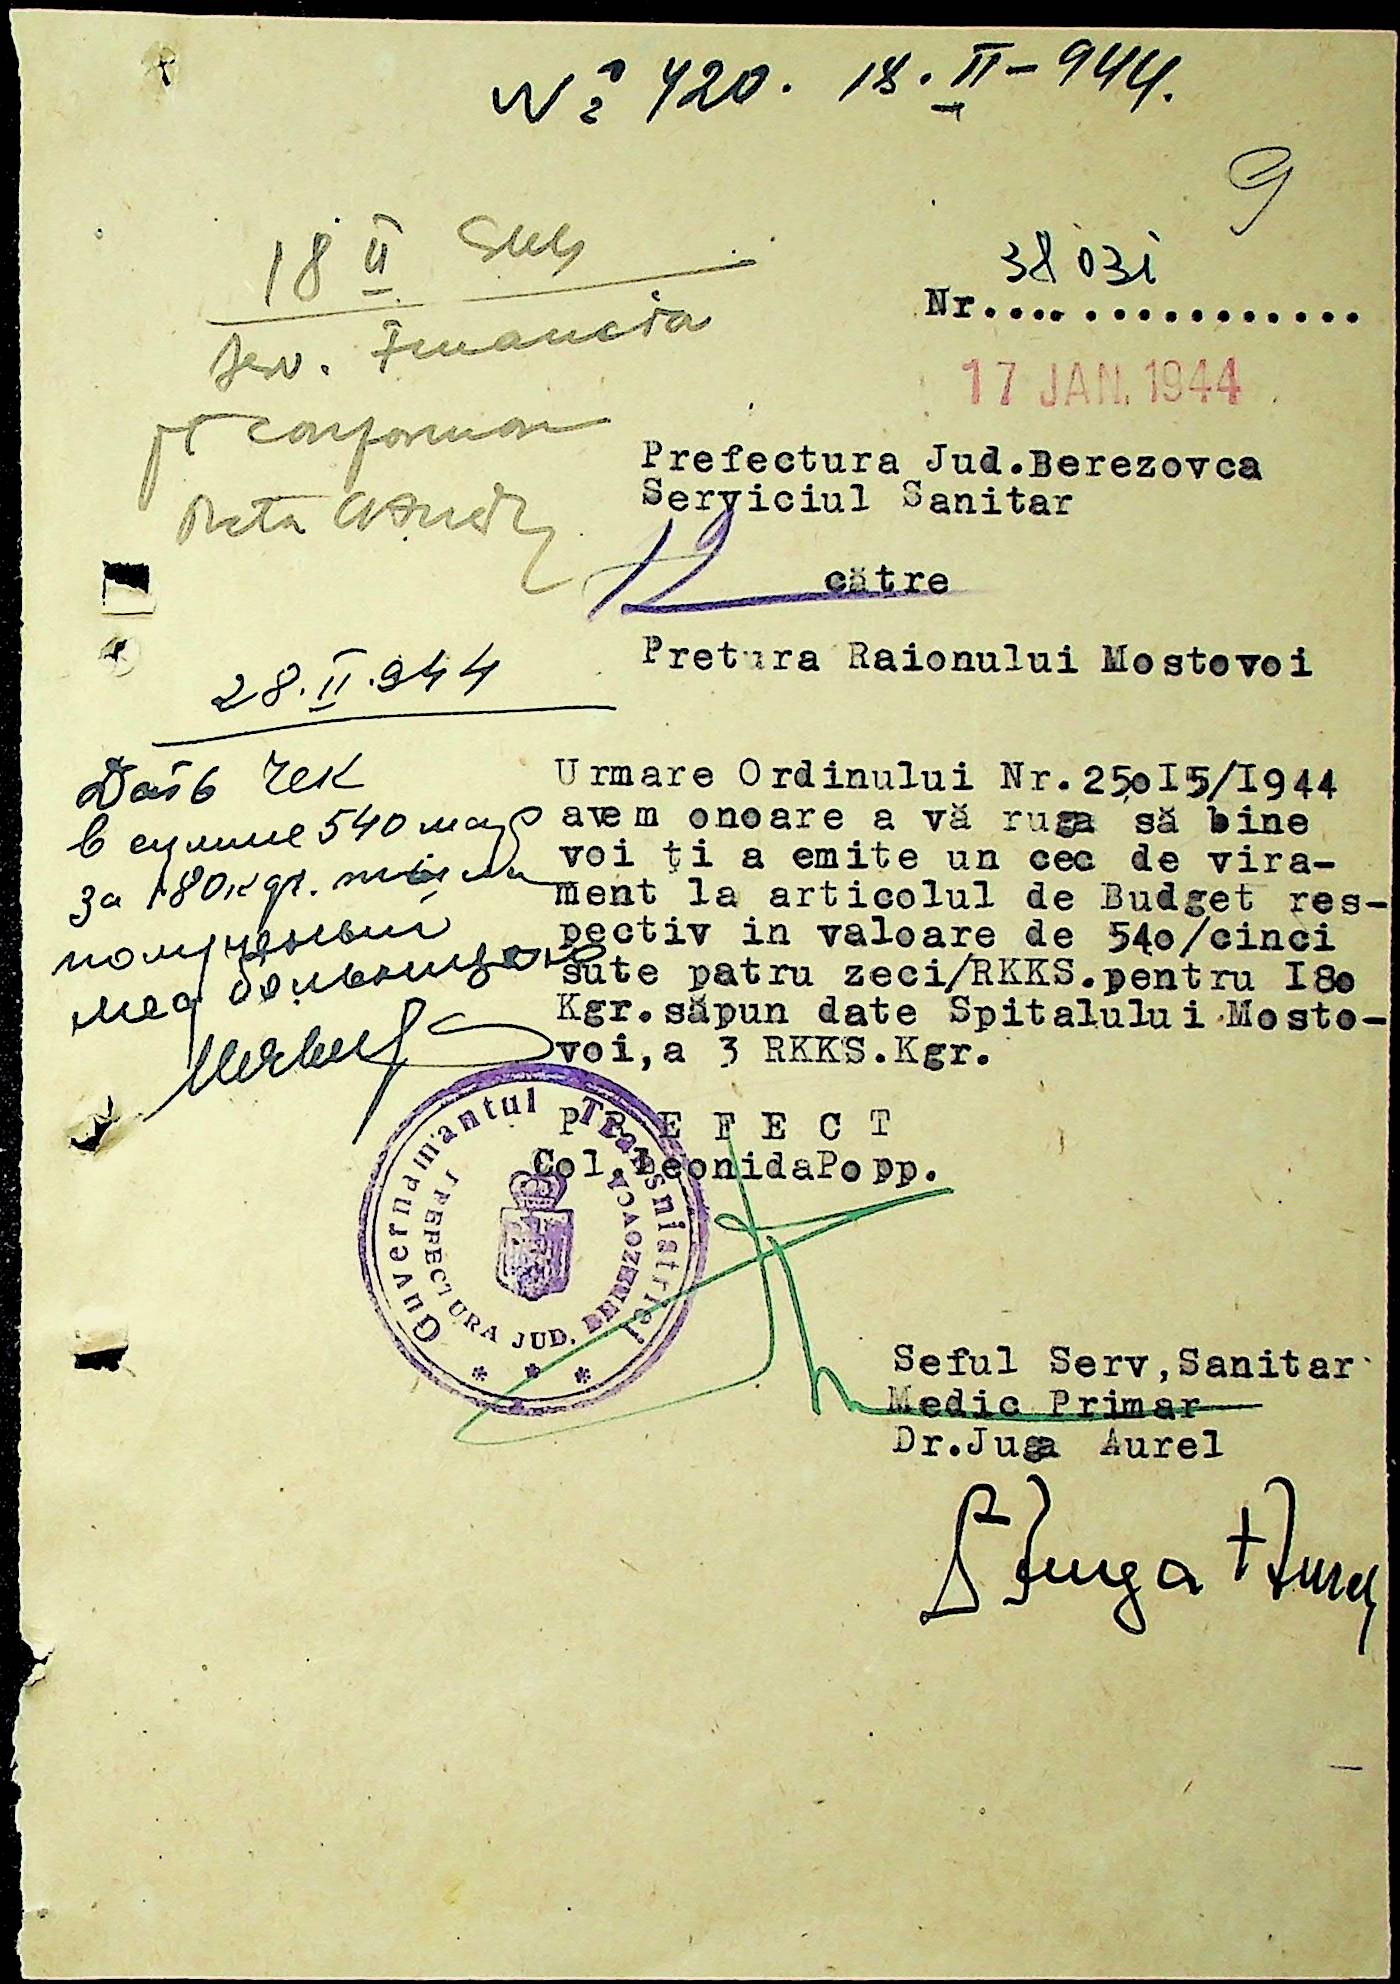 № 420. 18.II-944.
9
38031
Nr.... ...........
17 JAN. 1944
18 II
Serv. Financia
pt conformare
Prefectura Jud.Berezovca
Serviciul Sanitar
către
Pretura Raionului Mostovoi
28.II.944
Дать чек
в сумме 540 мар
за 180 кгр. мыла
мед больницею
Urmare Ordinului Nr.25oI5/I944
avem onoare a vă ruga să bine
voi ți a emite un cec de vira-
ment la articolul de Budget res-
pectiv in valoare de 54o/cinci
sute patru zeci/RKKS.pentru I8o
Kgr.săpun date Spitalului Mosto-
voi,a 3 RKKS.Kgr.
P R E F E C T
Col.LeonidaPopp.
Guvernamantul Transnistriei
PREFECTURA JUD. BEREZOVCA
* * *
Seful Serv,Sanitar
Medic Primar
Dr.Juga Aurel
Juga Aurel